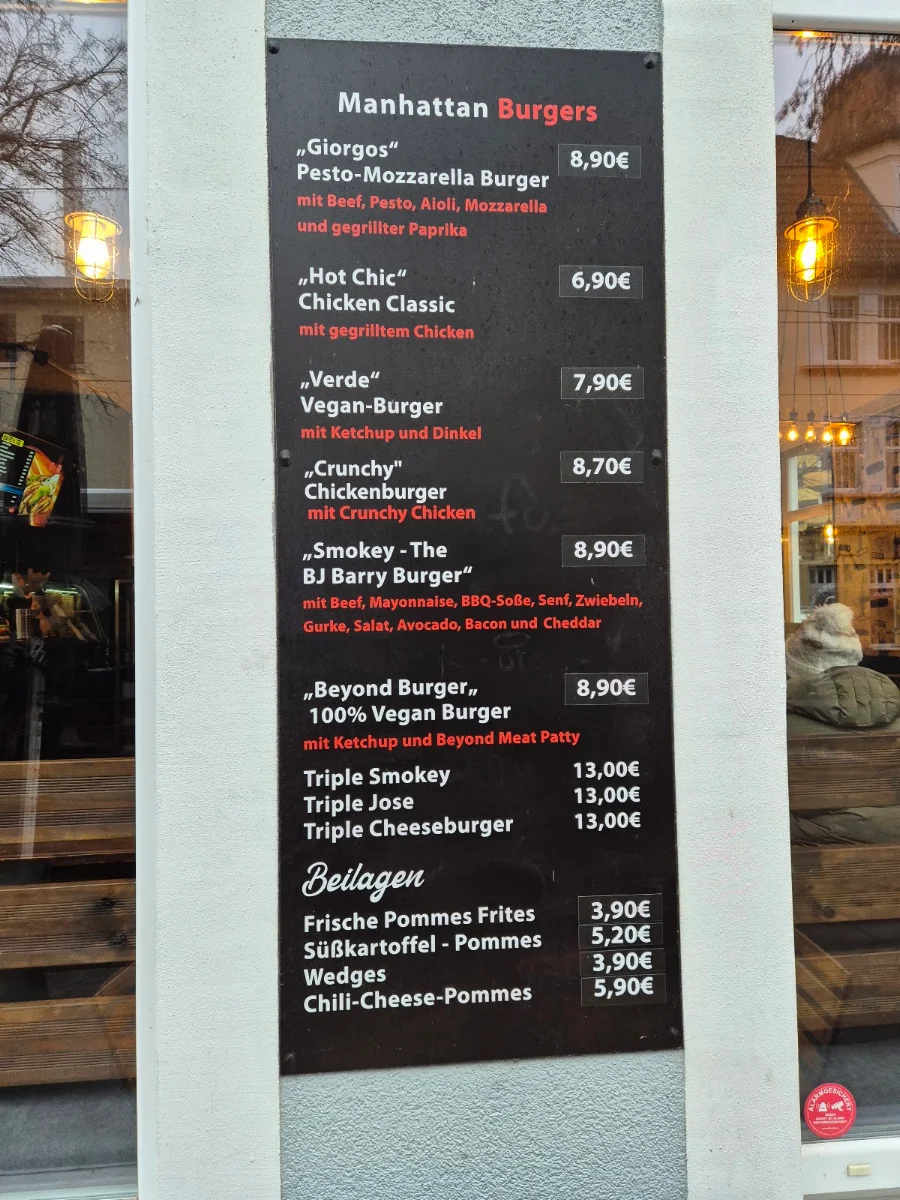 Manhattan Burgers
„Giorgos“ 8,90€
Pesto-Mozzarella Burger
mit Beef, Pesto, Aioli, Mozzarella
und gegrillter Paprika
„Hot Chic“ 6,90€
Chicken Classic
mit gegrilltem Chicken
„Verde“ 7,90€
Vegan-Burger
mit Ketchup und Dinkel
„Crunchy" 8,70€
Chickenburger
mit Crunchy Chicken
„Smokey - The 8,90€
BJ Barry Burger“
mit Beef, Mayonnaise, BBQ-Soße, Senf, Zwiebeln,
Gurke, Salat, Avocado, Bacon und Cheddar
„Beyond Burger„ 8,90€
100% Vegan Burger
mit Ketchup und Beyond Meat Patty
Triple Smokey 13,00€
Triple Jose 13,00€
Triple Cheeseburger 13,00€
Beilagen
Frische Pommes Frites 3,90€
Süßkartoffel - Pommes 5,20€
Wedges 3,90€
Chili-Cheese-Pommes 5,90€
ALARMGESICHERT